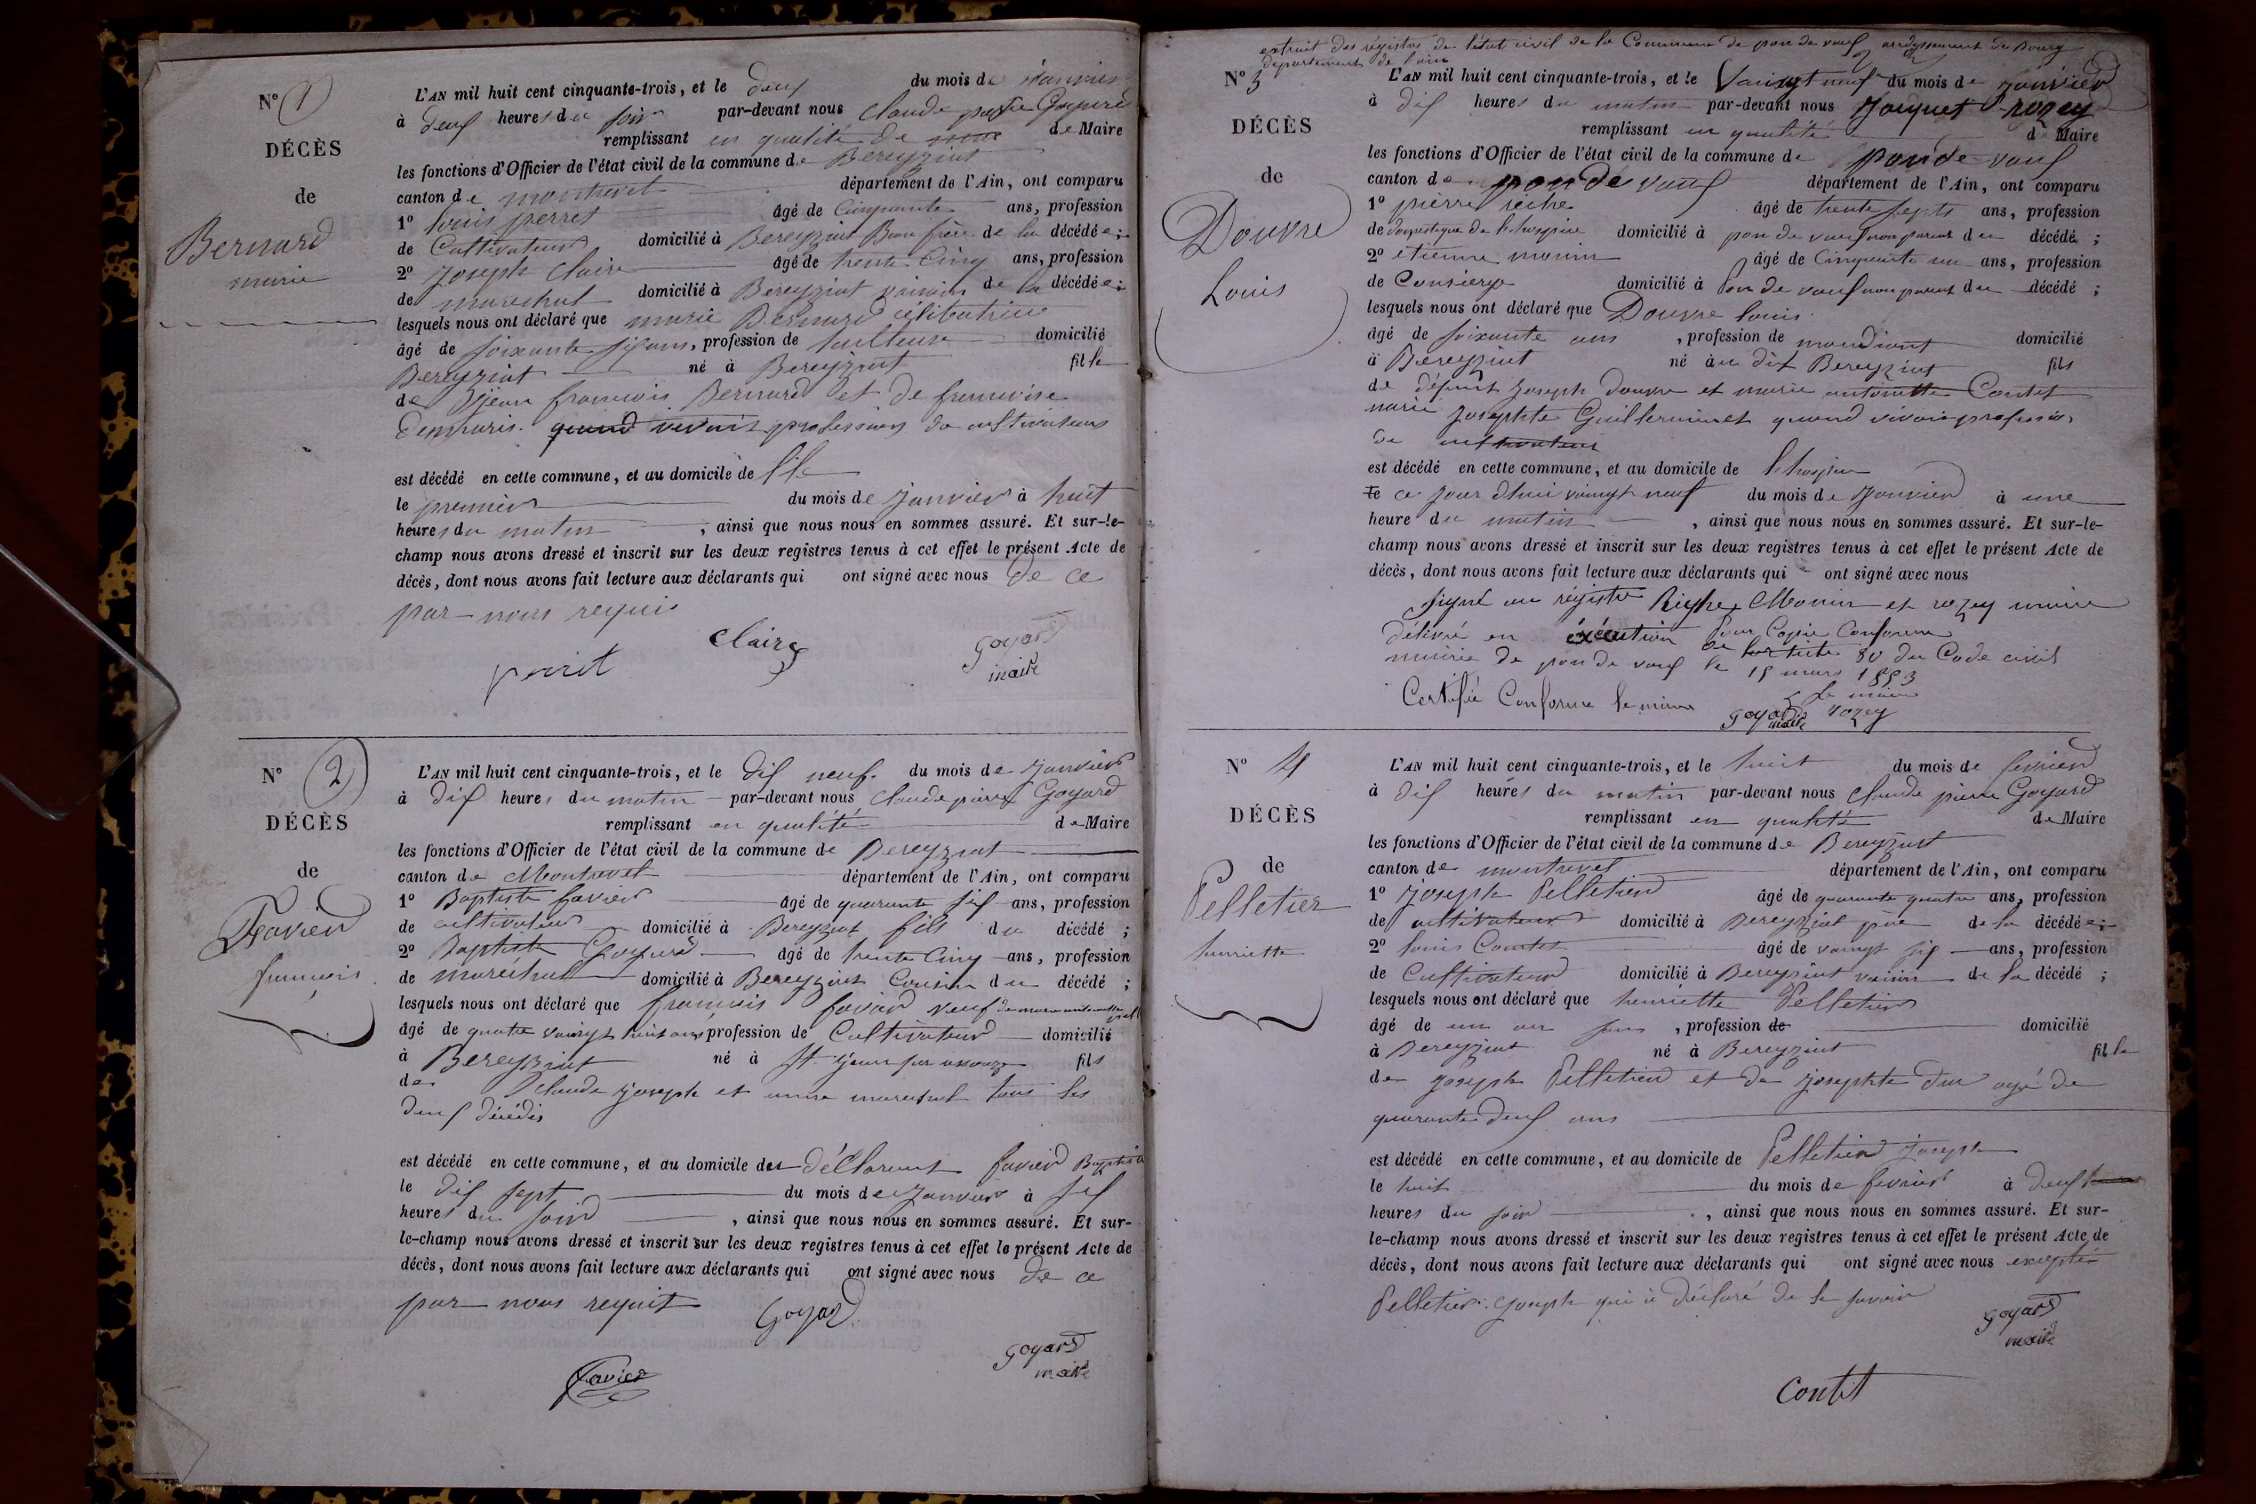 N° 1
DÉCÈS
de
Bernard
marie
L'AN mil huit cent cinquante-trois, et le deux du mois de Janvier
à deux heures du soir par-devant nous Claude pierre Goyard
remplissant en qualité de de Maire
les fonctions d'Officier de l'état civil de la commune de Bereyziat
canton de montrevel département de l'Ain, ont comparu
1° Louis perret âgé de Cinquante ans, profession
de Cultivateur domicilié à Bereyziat Beau frère de la décédée;
2° Joseph Claire âgé de trente Cinq ans, profession
de marechal domicilié à Bereyziat voisin de la décédée;
lesquels nous ont déclaré que marie Bernard célibatrice
âgé de soixante six ans, profession de tailleuse domicilié
Bereyziat né à Bereyziat fille
de jean francois Bernard et de francoise
Demparis. quand vivait professions de cultivateurs
est décédé en cette commune, et au domicile de
le premier du mois de Janvier à huit
heures du matin, ainsi que nous nous en sommes assuré. Et sur-le-
champ nous avons dressé et inscrit sur les deux registres tenus à cet effet le présent Acte de
décès, dont nous avons fait lecture aux déclarants qui ont signé avec nous de ce
par nous requis
Claire
perrit
goyard
maire
N° 2
DÉCÈS
de
Favier
francois
L'AN mil huit cent cinquante-trois, et le dix neuf du mois de Janvier
à dix heures du matin par-devant nous Claude pierre Goyard
remplissant en qualité de Maire
les fonctions d'Officier de l'état civil de la commune de Bereyziat
canton de Montrevel département de l'Ain, ont comparu
1° Baptiste favier âgé de quarante six ans, profession
de cultivateur domicilié à Bereyziat fils du décédé;
2° Baptiste Goyard âgé de trente Cinq ans, profession
de marechal domicilié à Bereyziat Cousin du décédé;
lesquels nous ont déclaré que francois favier veuf de
âgé de quatre vaingt huit ans profession de Cultivateur domicilié
à Bereyziat né à St jean sur fils
de Claude joseph et anne marechal tous les
deux décédés
est décédé en cette commune, et au domicile des déclarant favier Baptiste
le dix sept du mois de Janvier à six
heures du soir, ainsi que nous nous en sommes assuré. Et sur-
le-champ nous avons dressé et inscrit sur les deux registres tenus à cet effet le présent Acte de
décès, dont nous avons fait lecture aux déclarants qui ont signé avec nous de ce
par nous requit
Goyard
goyard
maire
Favier
extrait des régistres de létat civil de la Commune de pon de vaux arrdissement de Bourg
departement de l'ain
N° 3
DÉCÈS
de
Douvre
Louis
L'AN mil huit cent cinquante-trois, et le Vaingt neuf du mois de janvier
à dix heures du matin par-devant nous Jacquet rozey
remplissant en qualité de Maire
les fonctions d'Officier de l'état civil de la commune de pon de vaux
canton de pon de vaux département de l'Ain, ont comparu
1° pierre âgé de trente septs ans, profession
de domestique de lhospice domicilié à pon de vaux non parent du décédé;
2° etienne monin âgé de Cinquante un ans, profession
de Consierge domicilié à pon de vaux non parent du décédé;
lesquels nous ont déclaré que Douvre Louis
âgé de soixante ans, profession de mendiant domicilié
à Bereyziat né au dit Bereyziat fils
de défunt joseph douvre et marie antoinette Contet
marie josephte Guillerminet quand vivoit profession
de cultivateur
est décédé en cette commune, et au domicile de lhospice
le ce jour dhui vaingt neuf du mois de janvier à une
heure du matin, ainsi que nous nous en sommes assuré. Et sur-le-
champ nous avons dressé et inscrit sur les deux registres tenus à cet effet le présent Acte de
décès, dont nous avons fait lecture aux déclarants qui ont signé avec nous
signé au régistre Monin et rozey maire
Pour Copie Conforme
délivré en éxécution de larticle 80 du Code civil
mairie de pon de vaux le 15 mars 1853
Le maire
Certifié Conforme le maire goyard maire rozey
N° 4
DÉCÈS
de
Pelletier
henriette
L'AN mil huit cent cinquante-trois, et le huit du mois de fevrier
à dix heures du matin par-devant nous Claude pierre Goyard
remplissant en qualité de Maire
les fonctions d'Officier de l'état civil de la commune de Bereyziat
canton de montrevel département de l'Ain, ont comparu
1° Joseph Pelletier âgé de quarante quatre ans, profession
de cultivateur domicilié à Bereyziat père de la décédée;
2° Louis Contet âgé de vaingt six ans, profession
de Cultivateur domicilié à Bereyziat voisin de la décédé;
lesquels nous ont déclaré que henriette Pelletier
âgé de un an, profession de domicilié
à Bereyziat né à Bereyziat fille
de joseph Pelletier et de josephte agé de
quarante deux ans
est décédé en cette commune, et au domicile de Pelletier joseph
le huit du mois de fevrier à deux
heures du soir, ainsi que nous nous en sommes assuré. Et sur-
le-champ nous avons dressé et inscrit sur les deux registres tenus à cet effet le présent Acte de
décès, dont nous avons fait lecture aux déclarants qui ont signé avec nous excepté
Pelletier joseph qui à déclaré de le savoir
goyard
maire
Contet